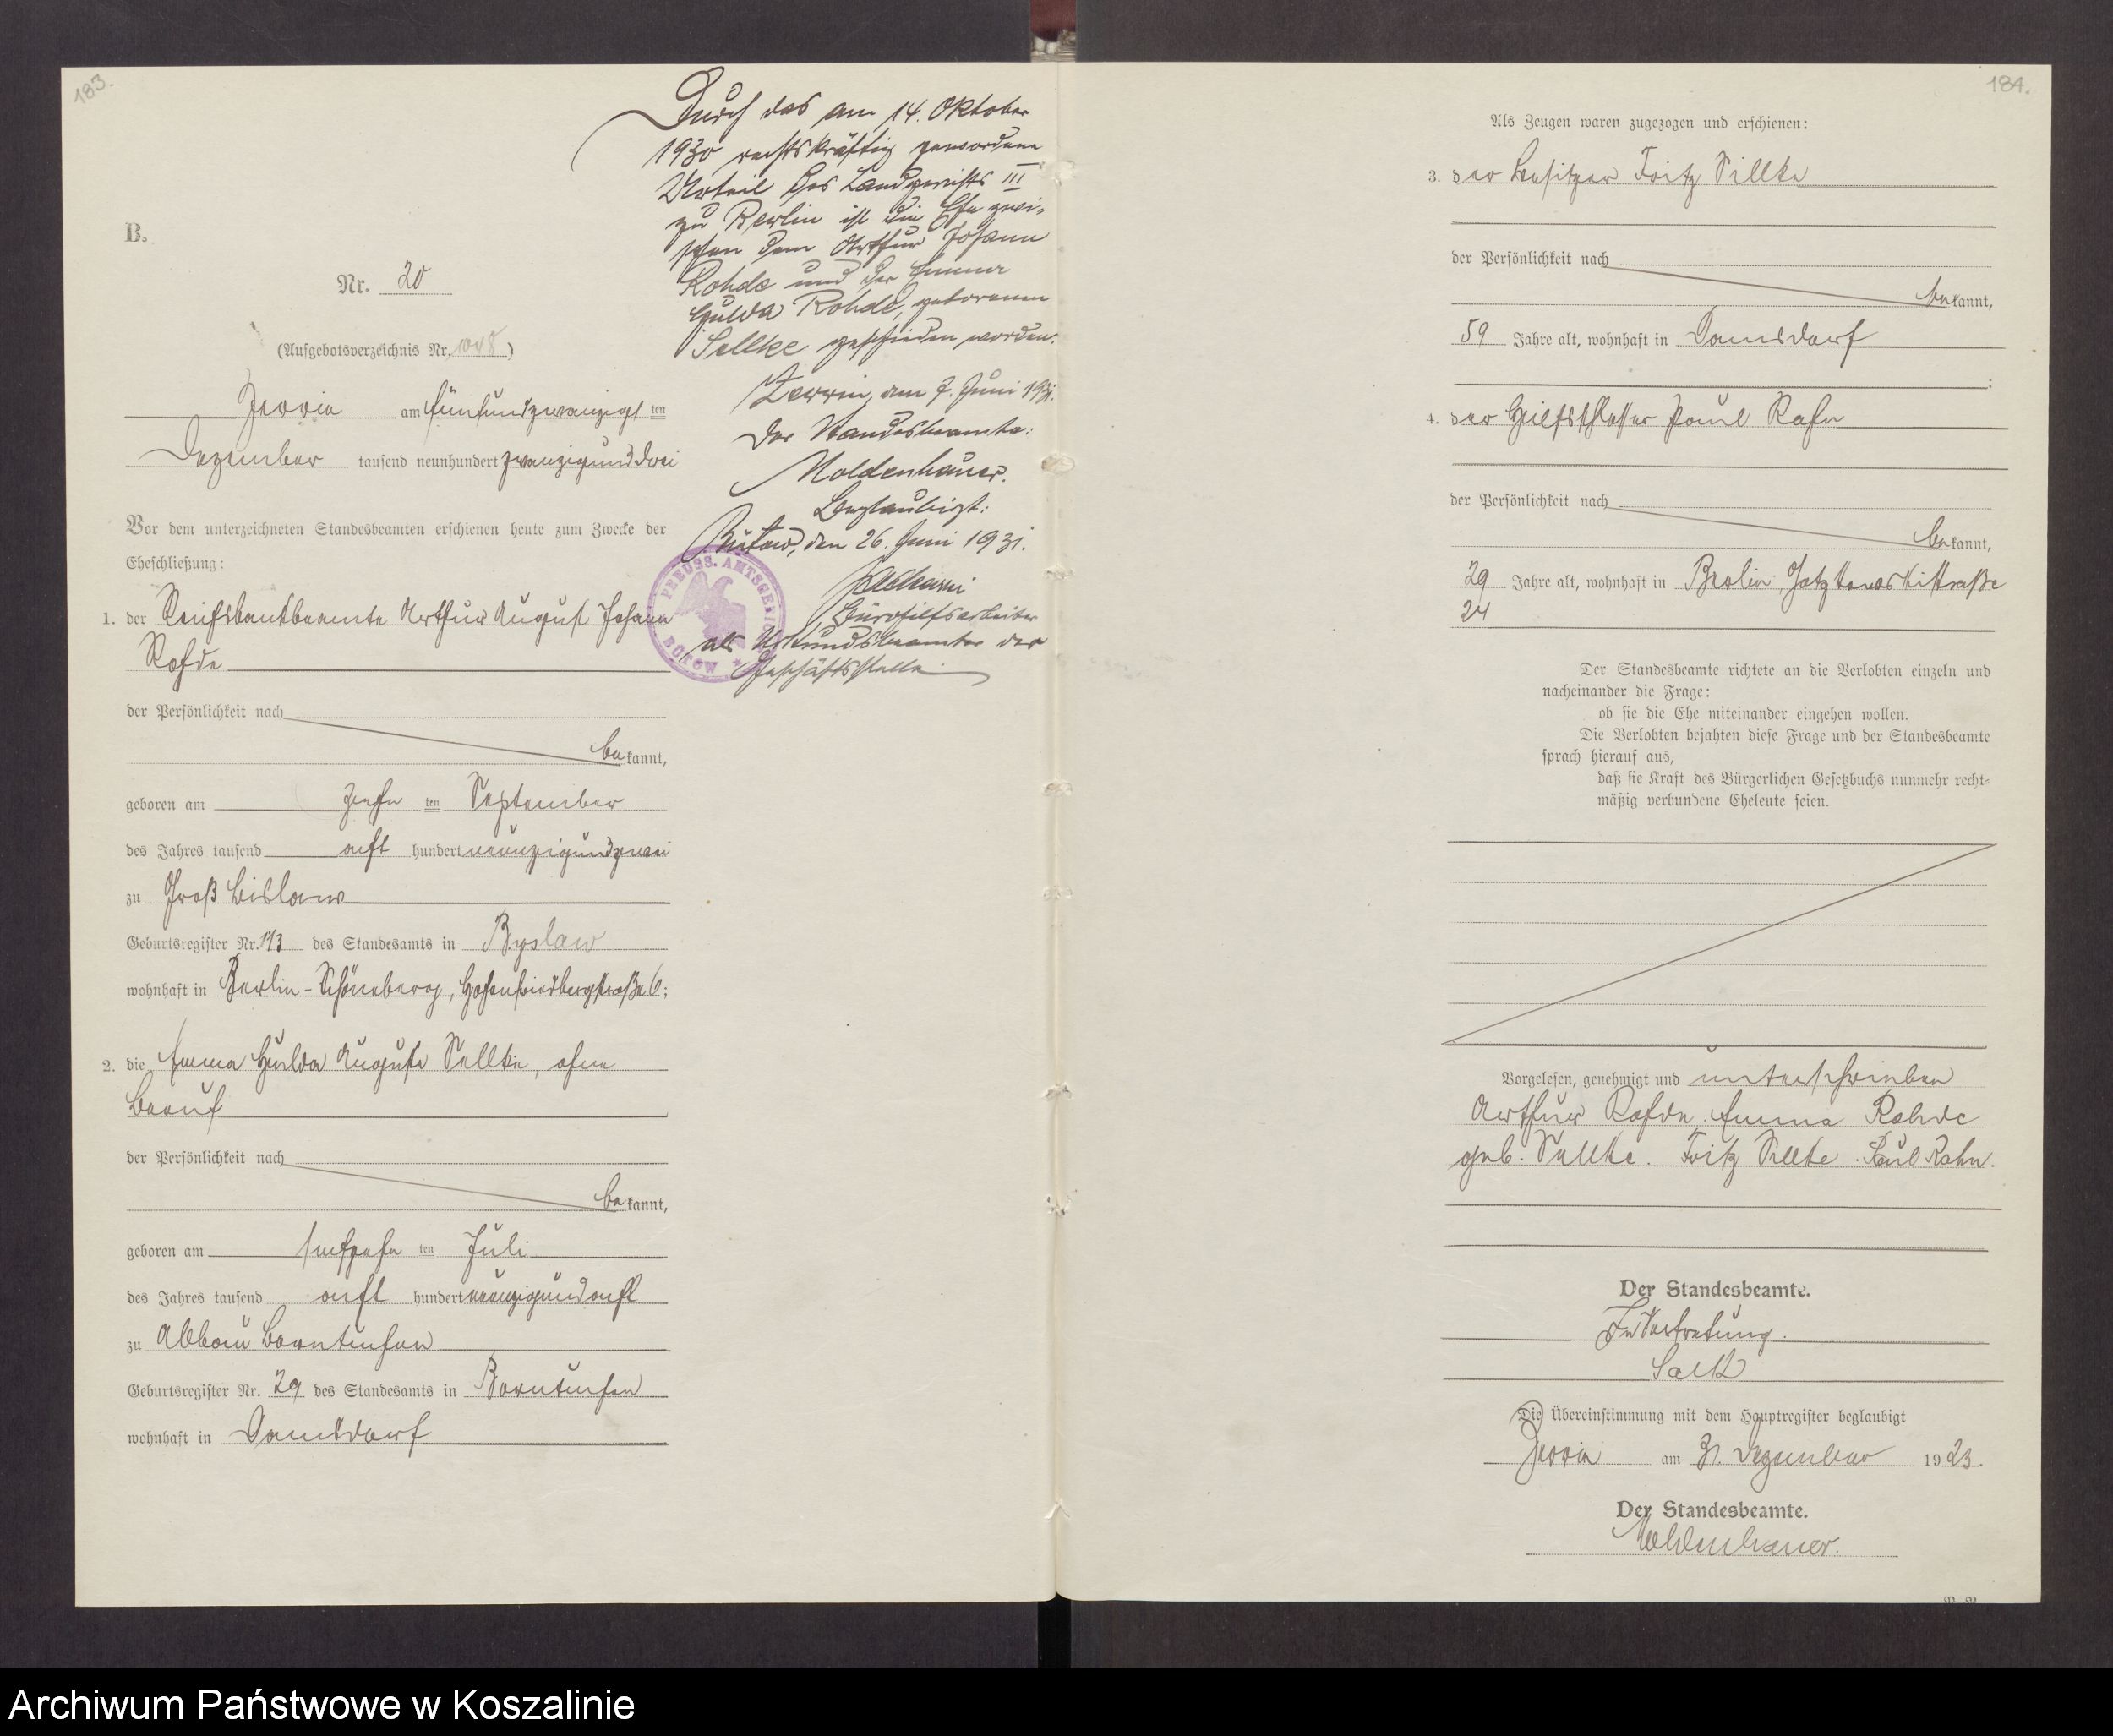 183.
B.
Nr. 20
(Aufgebotsverzeichnis Nr. )
Zerrin am fünfundzwanzigsten
Dezember tausend neunhundert zwanzigunddrei
Vor dem unterzeichneten Standesbeamten erschienen heute zum Zwecke der
Eheschließung:
1. der Reichsbankbeamte Arthur August Johann
Rohde
der Persönlichkeit nach
bekannt,
geboren am zehnten September
des Jahres tausend acht hundert neunzigundzwei
zu Groß Bislaw
Geburtsregister Nr. des Standesamts in Byslaw
wohnhaft in Berlin-Schöneberg, Hohenfriedbergstraße 6;
2. die Emma Hulda Auguste Sellke, ohne
Beruf
der Persönlichkeit nach
bekannt,
geboren am sechzehnten Juli
des Jahres tausend acht hundert neunzigundacht
zu Abbau Borntuchen
Geburtsregister Nr. 29 des Standesamts in Borntuchen
wohnhaft in Damsdorf
Durch das am 14. Oktober
1930 rechtskräftig gewordene
Urteil des Landgerichts III
zu Berlin ist die Ehe zwi-
schen dem Arthur Johann
Rohde und der Emma
Hulda Rohde, geborenen
Sellke geschieden worden.
Zerrin, am 7. Juni 1931.
Der Standesbeamte:
Moldenhauer.
Beglaubigt:
Bütow, den 26. Juni 1931.
Bürohilfsarbeiter
als Urkundsbeamter der
Geschäftsstelle
PREUSS. AMTSGERICHT
BÜTOW
184.
Als Zeugen waren zugezogen und erschienen:
3. der Besitzer Fritz Sellke
der Persönlichkeit nach
bekannt,
59 Jahre alt, wohnhaft in Damsdorf
;
4. der Hilfsschlosser Paul Rahn
der Persönlichkeit nach
bekannt,
29 Jahre alt, wohnhaft in Berlin, Gotzkowskistraße
24
Der Standesbeamte richtete an die Verlobten einzeln und
nacheinander die Frage:
ob sie die Ehe miteinander eingehen wollen.
Die Verlobten bejahten diese Frage und der Standesbeamte
sprach hierauf aus,
daß sie Kraft des Bürgerlichen Gesetzbuchs nunmehr recht-
mäßig verbundene Eheleute seien.
Vorgelesen, genehmigt und unterschrieben
Arthur Rohde. Emma Rohde
geb. Sellke. Fritz Sellke. Paul Rahn.
Der Standesbeamte.
In Vertretung.
Die Übereinstimmung mit dem Hauptregister beglaubigt
Zerrin am 31. Dezember 1923.
Der Standesbeamte.
Moldenhauer.
Archiwum Państwowe w Koszalinie